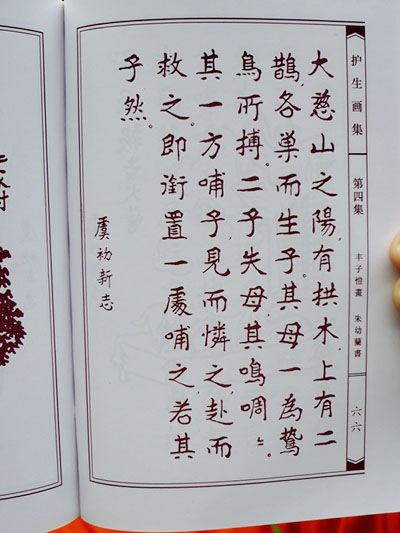 护生画集 第四集 丰子愷畫 朱幼蘭書 六六
大慈山之陽,有拱木,上有二
鵲,各巢而生子。其母一為鷙
鳥所搏。二子失母,其鳴啁〻。
其一方哺子,見而憐之,赴而
救之。即銜置一處哺之,若其
子然。
虞初新志